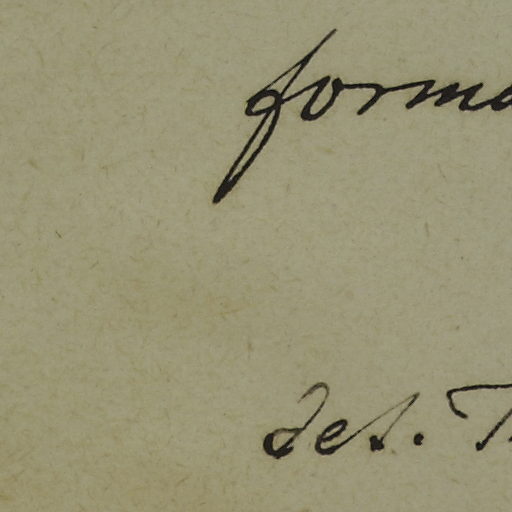 forma
det. T